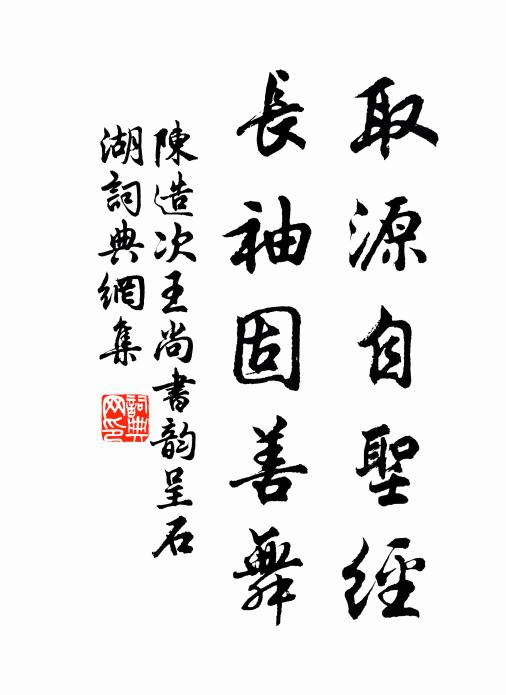 取源自聖經
長袖固善舞
陳造次王尚書韵呈石
湖詞典網集
詞典
网印